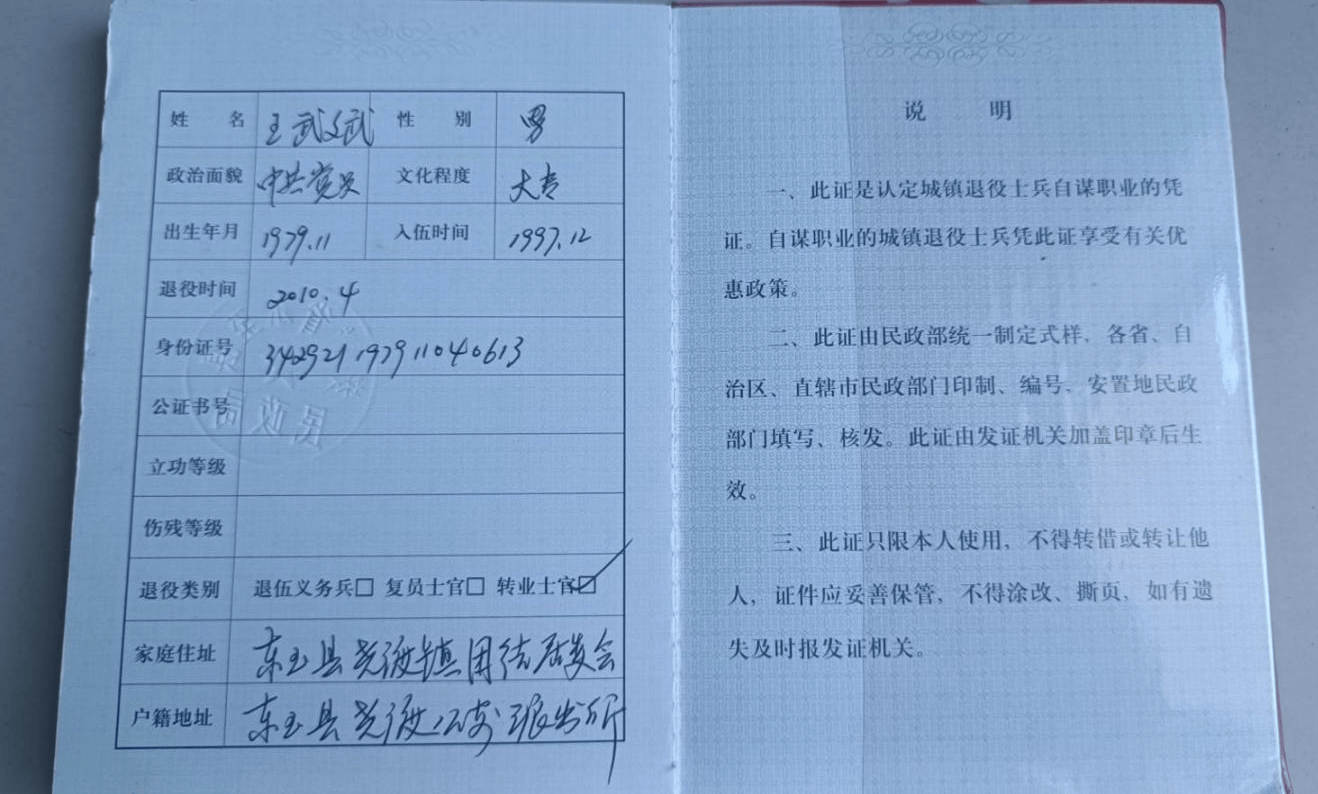 姓 名 王武 性 别 男
政治面貌 中共党员 文化程度 大专
出生年月 1979.11 入伍时间 1997.12
退役时间 2010.4
身份证号 342921197911040613
公证书号
立功等级
伤残等级
退役类别 退伍义务兵□ 复员士官□ 转业士官☑
家庭住址 东至县尧渡镇团结居委会
户籍地址 东至县尧渡公安派出所
民政局
说 明
一、此证是认定城镇退役士兵自谋职业的凭
证。自谋职业的城镇退役士兵凭此证享受有关优
惠政策。
二、此证由民政部统一制定式样，各省、自
治区、直辖市民政部门印制、编号，安置地民政
部门填写、核发。此证由发证机关加盖印章后生
效。
三、此证只限本人使用，不得转借或转让他
人，证件应妥善保管，不得涂改、撕页，如有遗
失及时报发证机关。